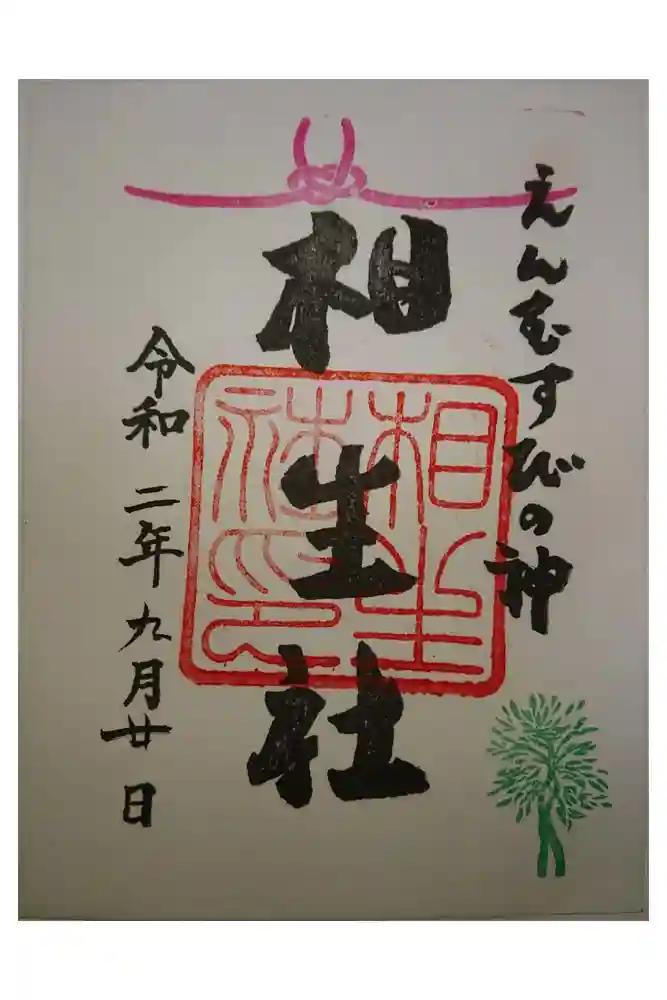 えんむすびの神
相生社
相生社印
令和二年九月廿日